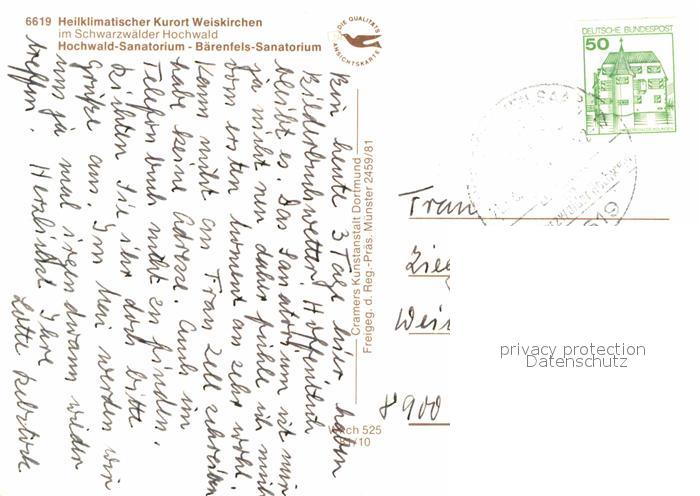 6619 Heilklimatischer Kurort Weiskirchen
im Schwarzwälder Hochwald
Hochwald-Sanatorium - Bärenfels-Sanatorium
DIE QUALITÄTS
ANSICHTSKARTE
DEUTSCHE BUNDESPOST
50
Bin heute 3 Tage hier, haben
Bilderbuchwetter. Hoffentlich
bleibt es. Das Sanatorium ist mir
ja nicht neu daher fühle ich mich
vom ersten Moment an sehr wohl.
Kann nicht an Frau Zell schreiben
habe keine Adresse. Auch im
Telefon buch nicht zu finden.
Richten Sie ihr doch bitte
Grüße aus. Im werden wir
uns ja mal irgendwann wieder
treffen. Herzlichst Ihre
Lotte
Cramers Kunstanstalt Dortmund
Freigeg. d. Reg.-Präs. Münster 2459/81
525
/10
Frau
Zieg
Wei
8900
privacy protection
Datenschutz